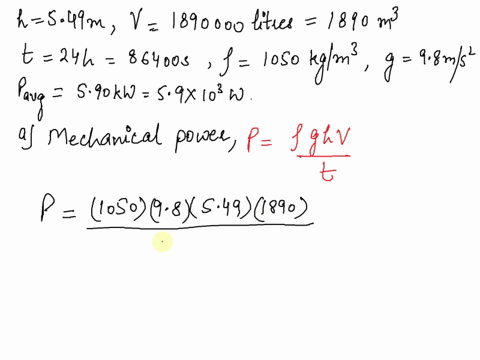 h = 5.49m, V = 1890000 litres = 1890 m³
t = 24h = 86400s, ρ = 1050 kg/m³, g = 9.8 m/s²
Pavg = 5.90kW = 5.9 × 10³ W.
a) Mechanical power, P = ρghV / t
P = (1050)(9.8)(5.49)(1890)